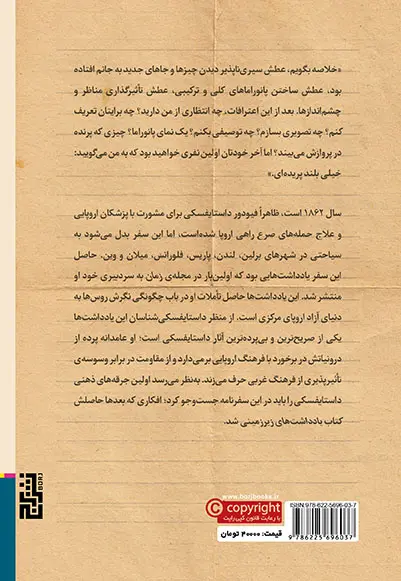 «خلاصه بگویم، عطش سیری‌ناپذیر دیدن چیزها و جاهای جدید به جانم افتاده
بود، عطش ساختن پانوراماهای کلی و ترکیبی، عطش تأثیرگذاری مناظر و
چشم‌اندازها. بعد از این اعترافات، چه انتظاری از من دارید؟ چه برایتان تعریف
کنم؟ چه تصویری بسازم؟ چه توصیفی بکنم؟ یک نمای پانوراما؟ چیزی که پرنده
در پروازش می‌بیند؟ اما آخر خودتان اولین نفری خواهید بود که به من می‌گویید:
خیلی بلند پریده‌ای.»
سال ۱۸۶۲ است، ظاهراً فیودور داستایفسکی برای مشورت با پزشکان اروپایی
و علاج حمله‌های صرع راهی اروپا شده‌است، اما این سفر بدل می‌شود به
سیاحتی در شهرهای برلین، لندن، پاریس، فلورانس، میلان و وین. حاصل
این سفر یادداشت‌هایی بود که اولین‌بار در مجله‌ی زمان به سردبیری خود او
منتشر شد. این یادداشت‌ها حاصل تأملات او در باب چگونگی نگرش روس‌ها به
دنیای آزاد اروپای مرکزی است. از منظر داستایفسکی‌شناسان این یادداشت‌ها
یکی از صریح‌ترین و بی‌پرده‌ترین آثار داستایفسکی است؛ او عامدانه پرده از
درونیاتش در برخورد با فرهنگ اروپایی برمی‌دارد و از مقاومت در برابر وسوسه‌ی
تأثیرپذیری از فرهنگ غربی حرف می‌زند. به‌نظر می‌رسد اولین جرقه‌های ذهنی
داستایفسکی را باید در این سفرنامه جست‌وجو کرد؛ افکاری که بعدها حاصلش
کتاب یادداشت‌های زیرزمینی شد.
برج
BORJ
www.borjbooks.ir
© copyright
با رعایت قانون کپی‌رایت
قیمت: ۴۰۰۰۰ تومان
ISBN: 978-622-5696-03-7
9 786225 696037